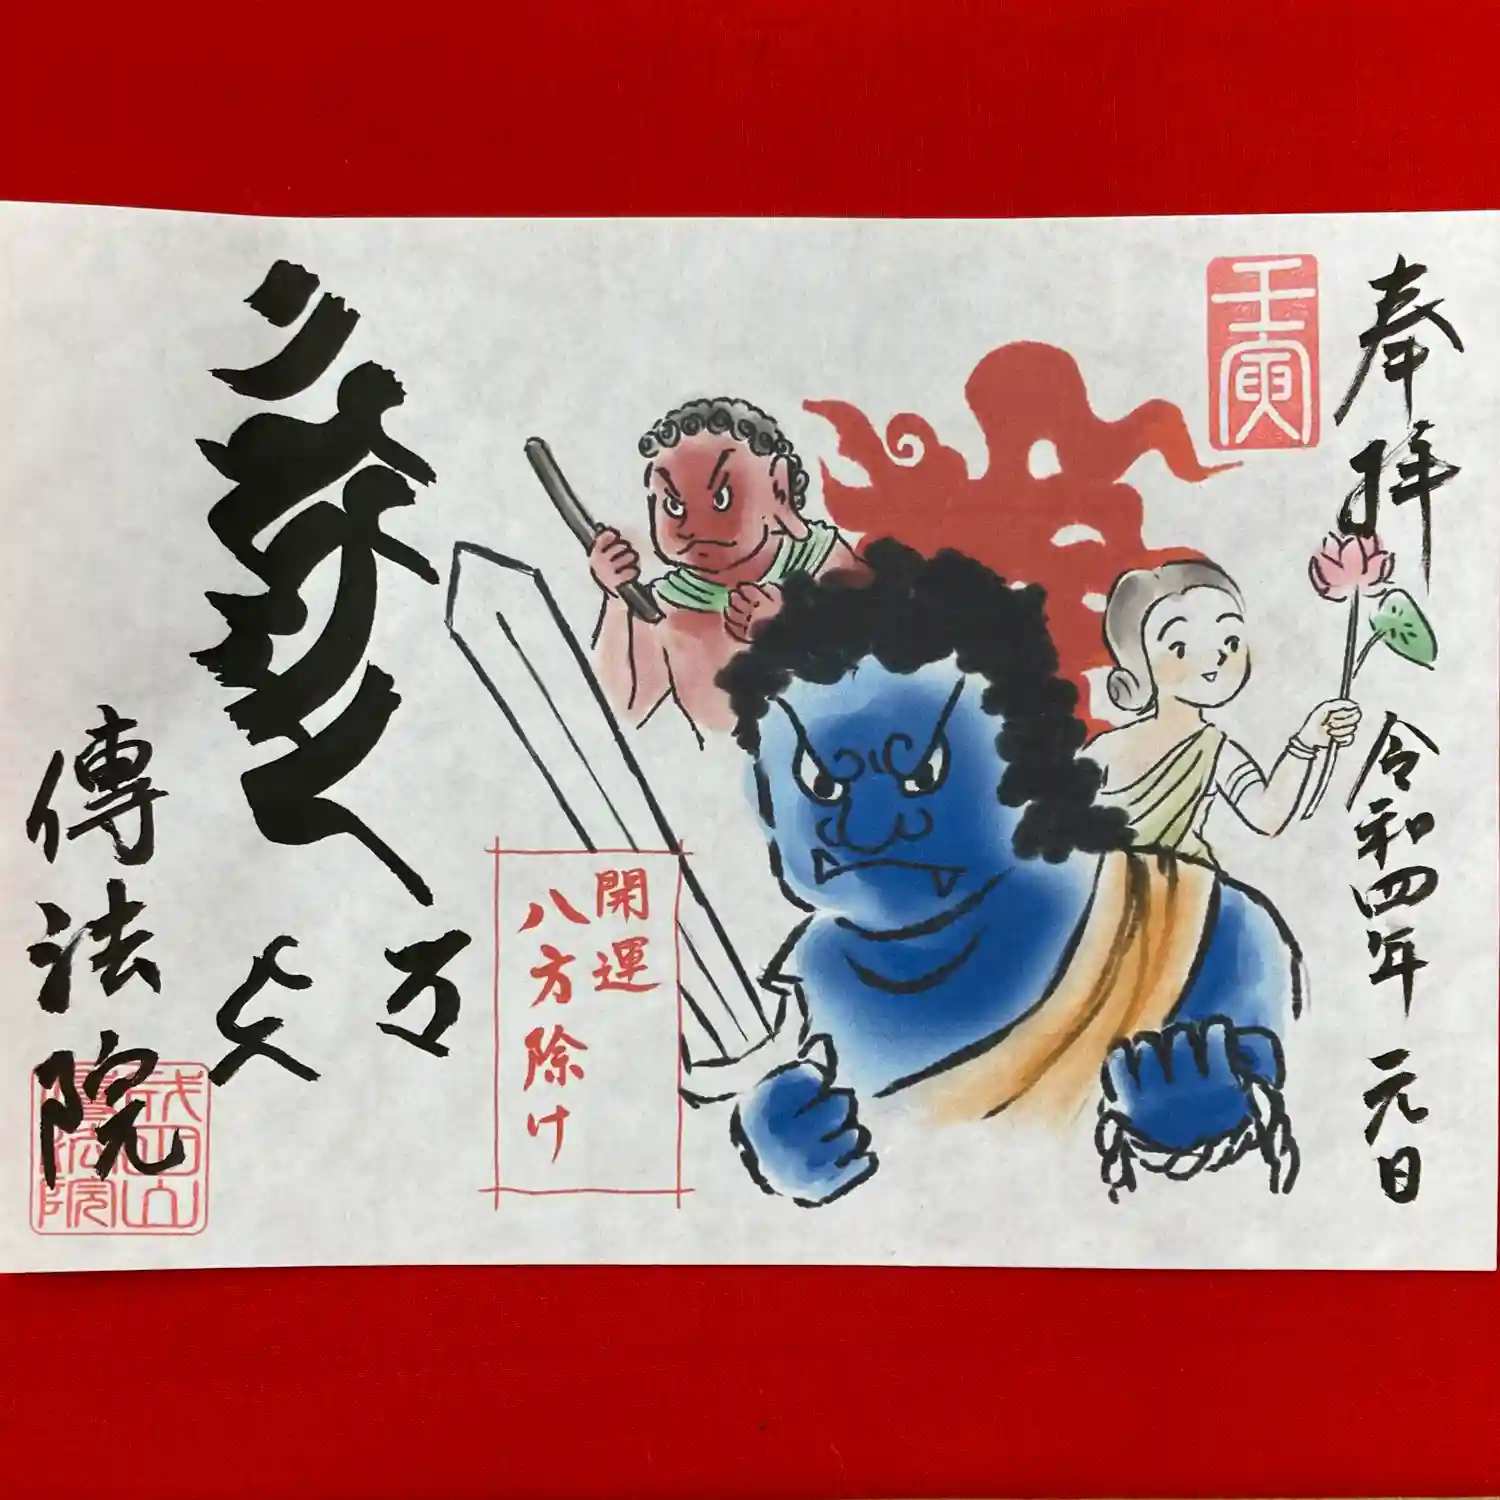 奉拝
令和四年 元日
壬寅
開運
八方除け
傳法院